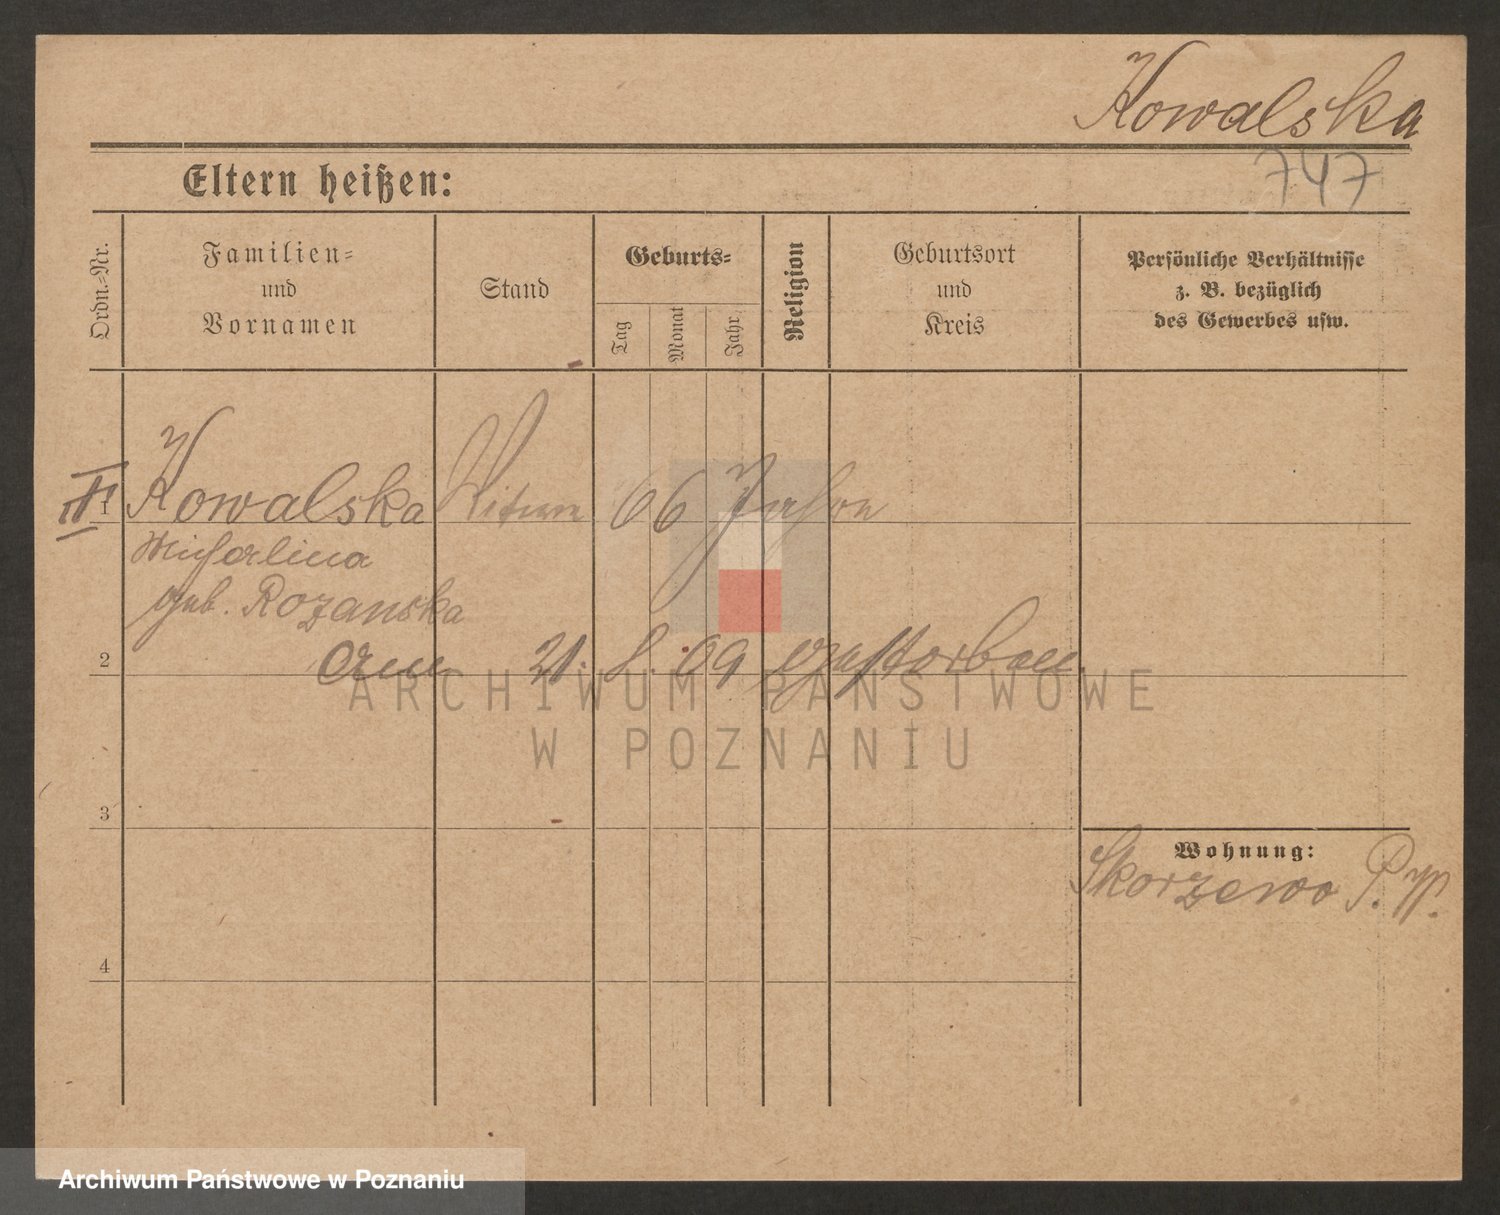 Kowalska
747
Eltern heißen:
Ordn.-Nr.
Familien-
und
Vornamen
Stand
Geburts-
Tag
Monat
Jahr
Religion
Geburtsort
und
Kreis
Persönliche Verhältnisse
z. B. bezüglich
des Gewerbes usw.
II
1 Kowalska Witwe 66 Jahre
Michalina
geb. Rozanska
2 am 21. 8. 09 gestorben
3
Wohnung:
Skorzewo P. W.
4
ARCHIWUM PAŃSTWOWE
W POZNANIU
Archiwum Państwowe w Poznaniu